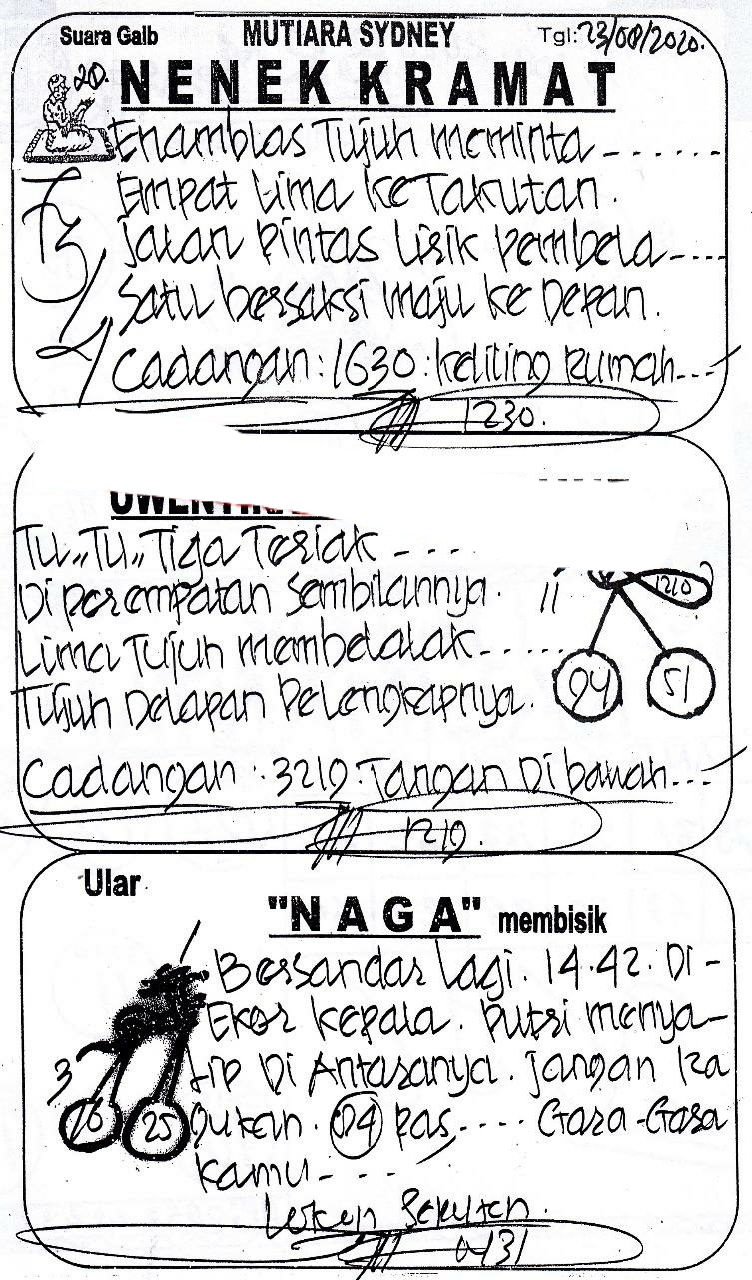 Suara Gaib MUTIARA SYDNEY Tgl: 23/08/2020.
20. NENEK KRAMAT
Enamblas Tujuh meminta ------
Empat Lima keTakutan.
Jalan Pintas Lirik Pembela----
Satu bersaksi maju ke Depan.
Cadangan: 1630: keliling Rumah...
1230.
Tu,,Tu,,Tiga Teriak ----
Di perempatan Sembilannya. 1210
Lima Tujuh membelalak------
94 51
Tujuh Delapan Pelengkapnya.
Cadangan: 3219: Tangan Di bawah...
1219.
Ular
"NAGA" membisik
Bersandar Lagi. 14.42. Di-
Ekor kepala. Putri menya-
Lip Di Antaranya. Jangan Ra
3 25 gukan. 04 Pas,.... Gara-Gara
kamu----
0431